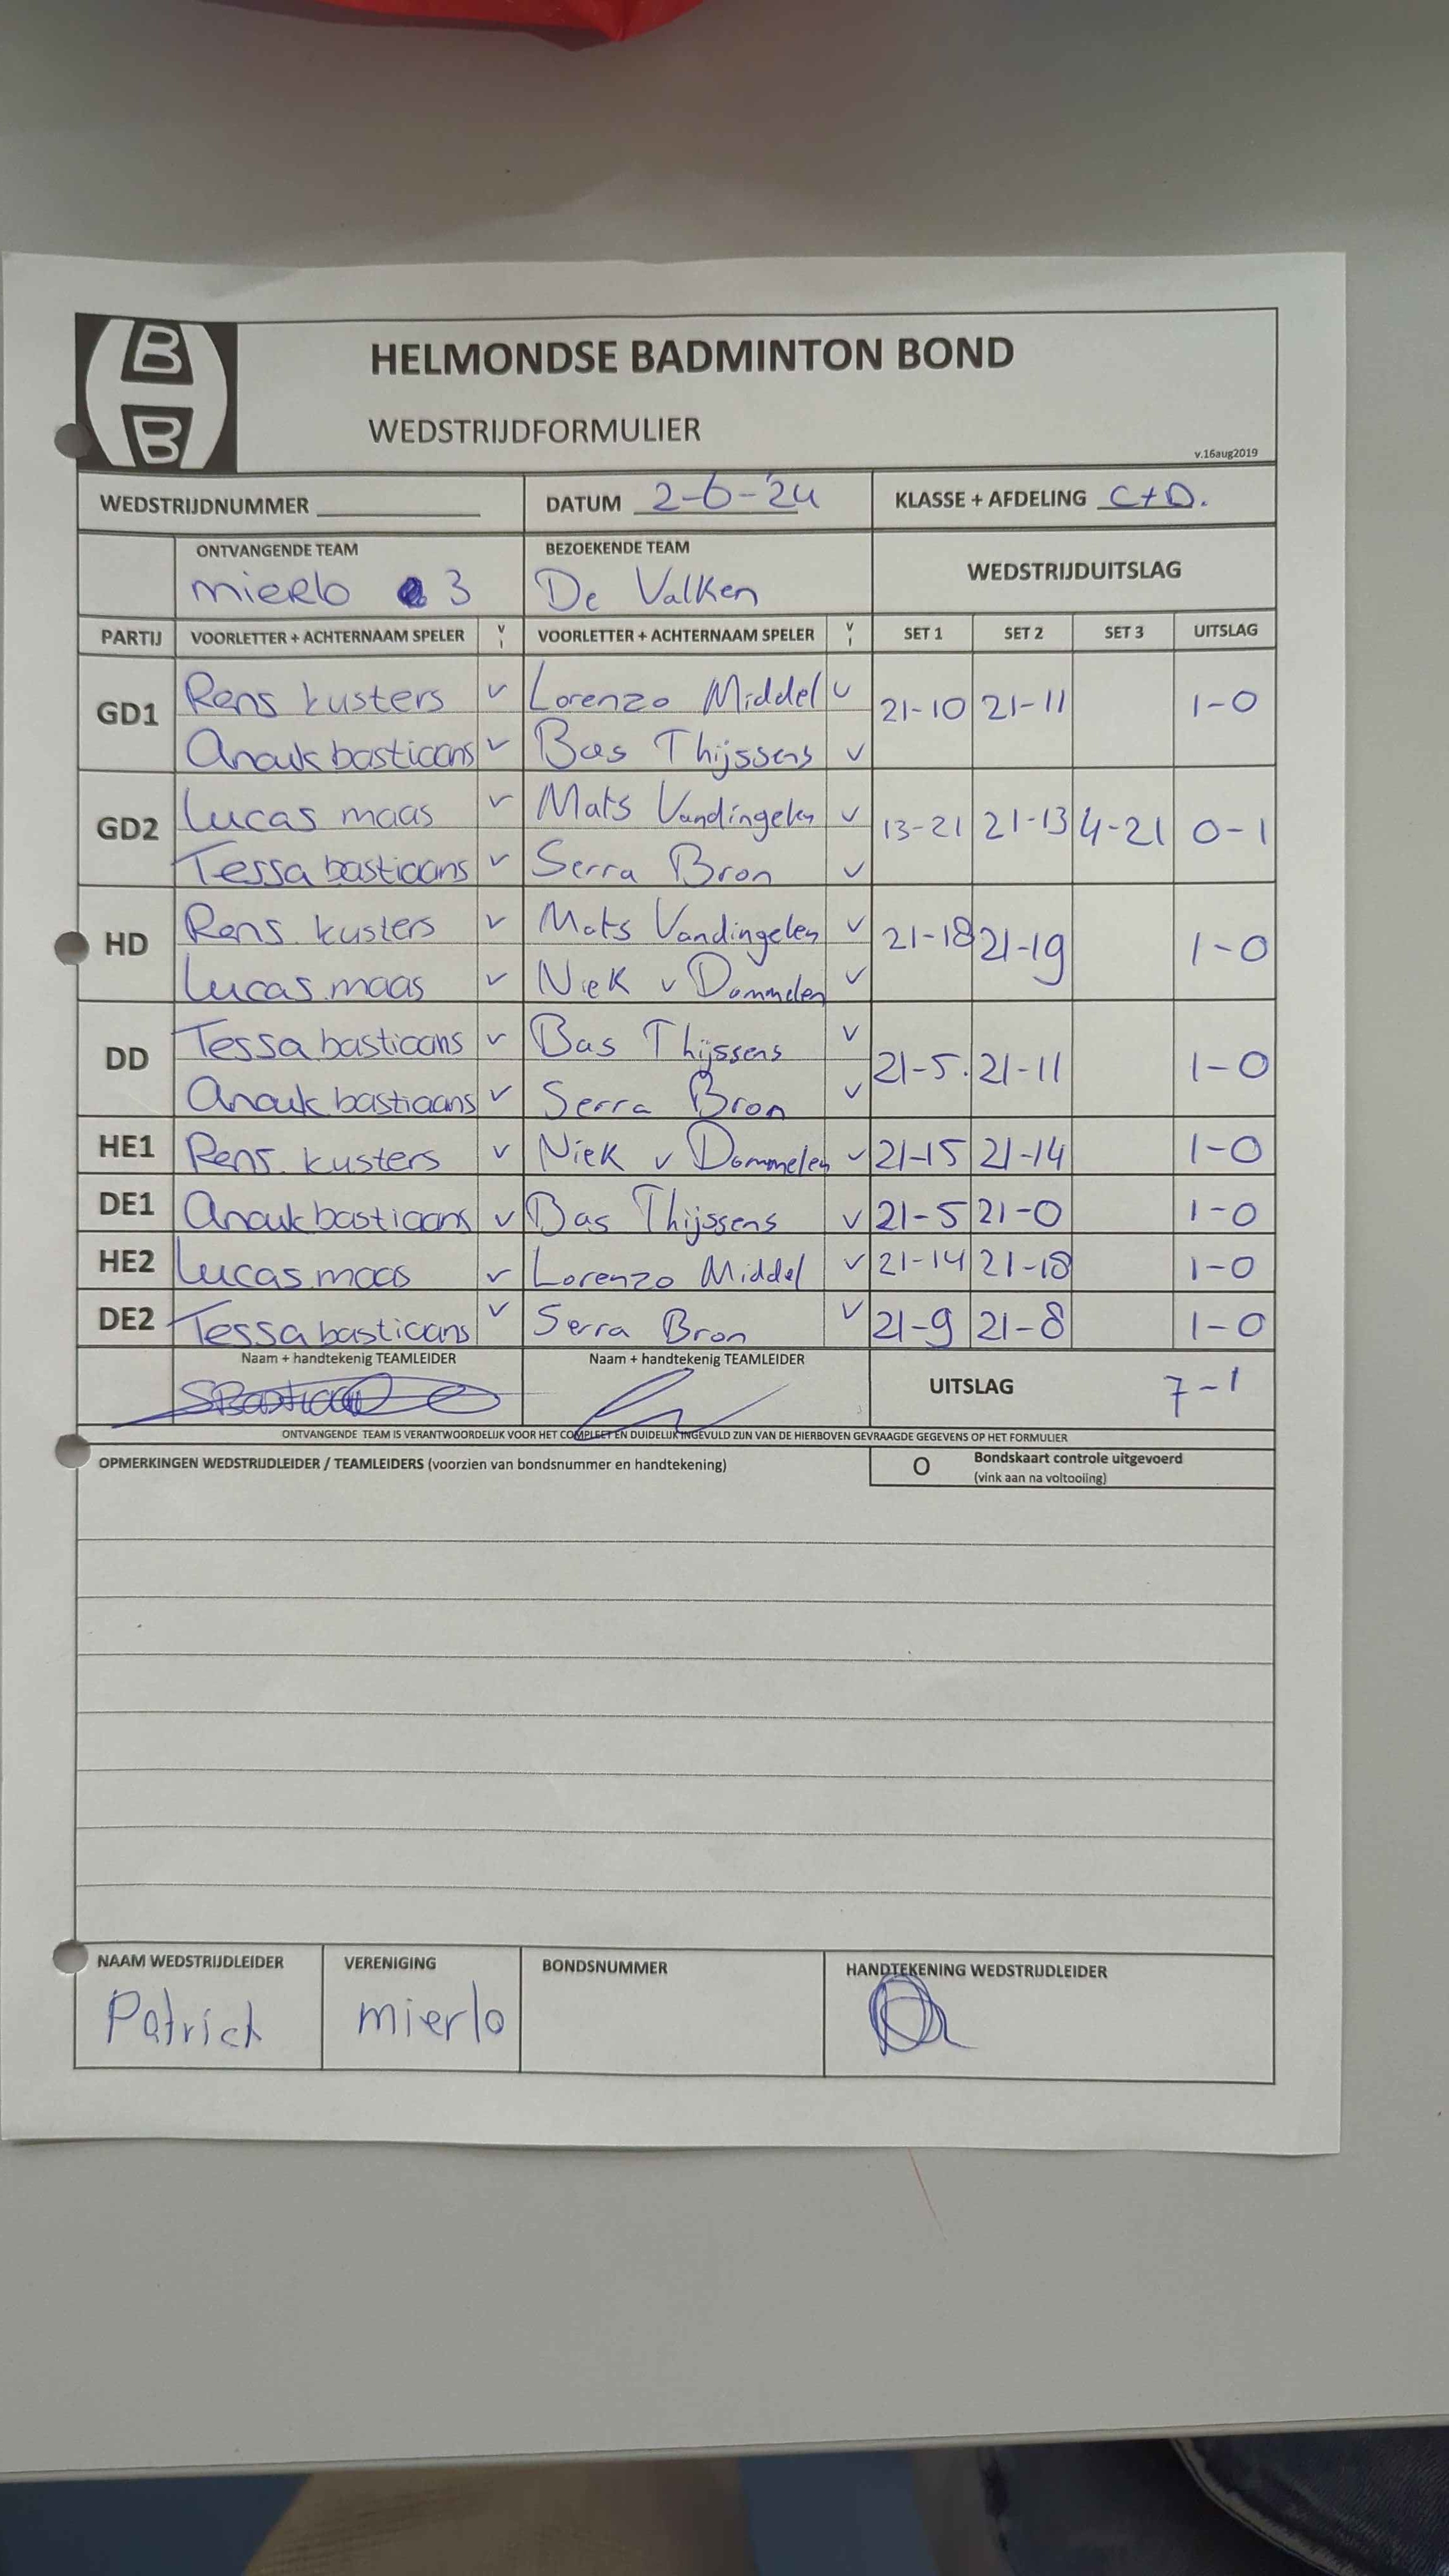 B
B
HELMONDSE BADMINTON BOND
WEDSTRIJDFORMULIER
v.16aug2019
WEDSTRIJDNUMMER DATUM 2-6-'24 KLASSE + AFDELING C+D.
ONTVANGENDE TEAM BEZOEKENDE TEAM WEDSTRIJDUITSLAG
mierlo 3 De Valken
PARTIJ VOORLETTER + ACHTERNAAM SPELER V I VOORLETTER + ACHTERNAAM SPELER V I SET 1 SET 2 SET 3 UITSLAG
GD1 Rens kusters v Lorenzo Middel v 21-10 21-11 1-0
Anouk bastiaans v Bas Thijssens v
GD2 Lucas maas v Mats Vandingelen v 13-21 21-13 4-21 0-1
Tessa bastiaans v Serra Bron v
HD Rens kusters v Mats Vandingelen v 21-18 21-19 1-0
Lucas maas v Niek v Dommelen v
DD Tessa bastiaans v Bas Thijssens v 21-5. 21-11 1-0
Anouk bastiaans v Serra Bron v
HE1 Rens kusters v Niek v Dommelen v 21-15 21-14 1-0
DE1 Anouk bastiaans v Bas Thijssens v 21-5 21-0 1-0
HE2 Lucas maas v Lorenzo Middel v 21-14 21-18 1-0
DE2 Tessa bastiaans v Serra Bron v 21-9 21-8 1-0
Naam + handtekenig TEAMLEIDER Naam + handtekenig TEAMLEIDER
UITSLAG 7-1
ONTVANGENDE TEAM IS VERANTWOORDELIJK VOOR HET COMPLEET EN DUIDELIJK INGEVULD ZIJN VAN DE HIERBOVEN GEVRAAGDE GEGEVENS OP HET FORMULIER
OPMERKINGEN WEDSTRIJDLEIDER / TEAMLEIDERS (voorzien van bondsnummer en handtekening) O Bondskaart controle uitgevoerd
(vink aan na voltooiing)
NAAM WEDSTRIJDLEIDER VERENIGING BONDSNUMMER HANDTEKENING WEDSTRIJDLEIDER
Patrick mierlo